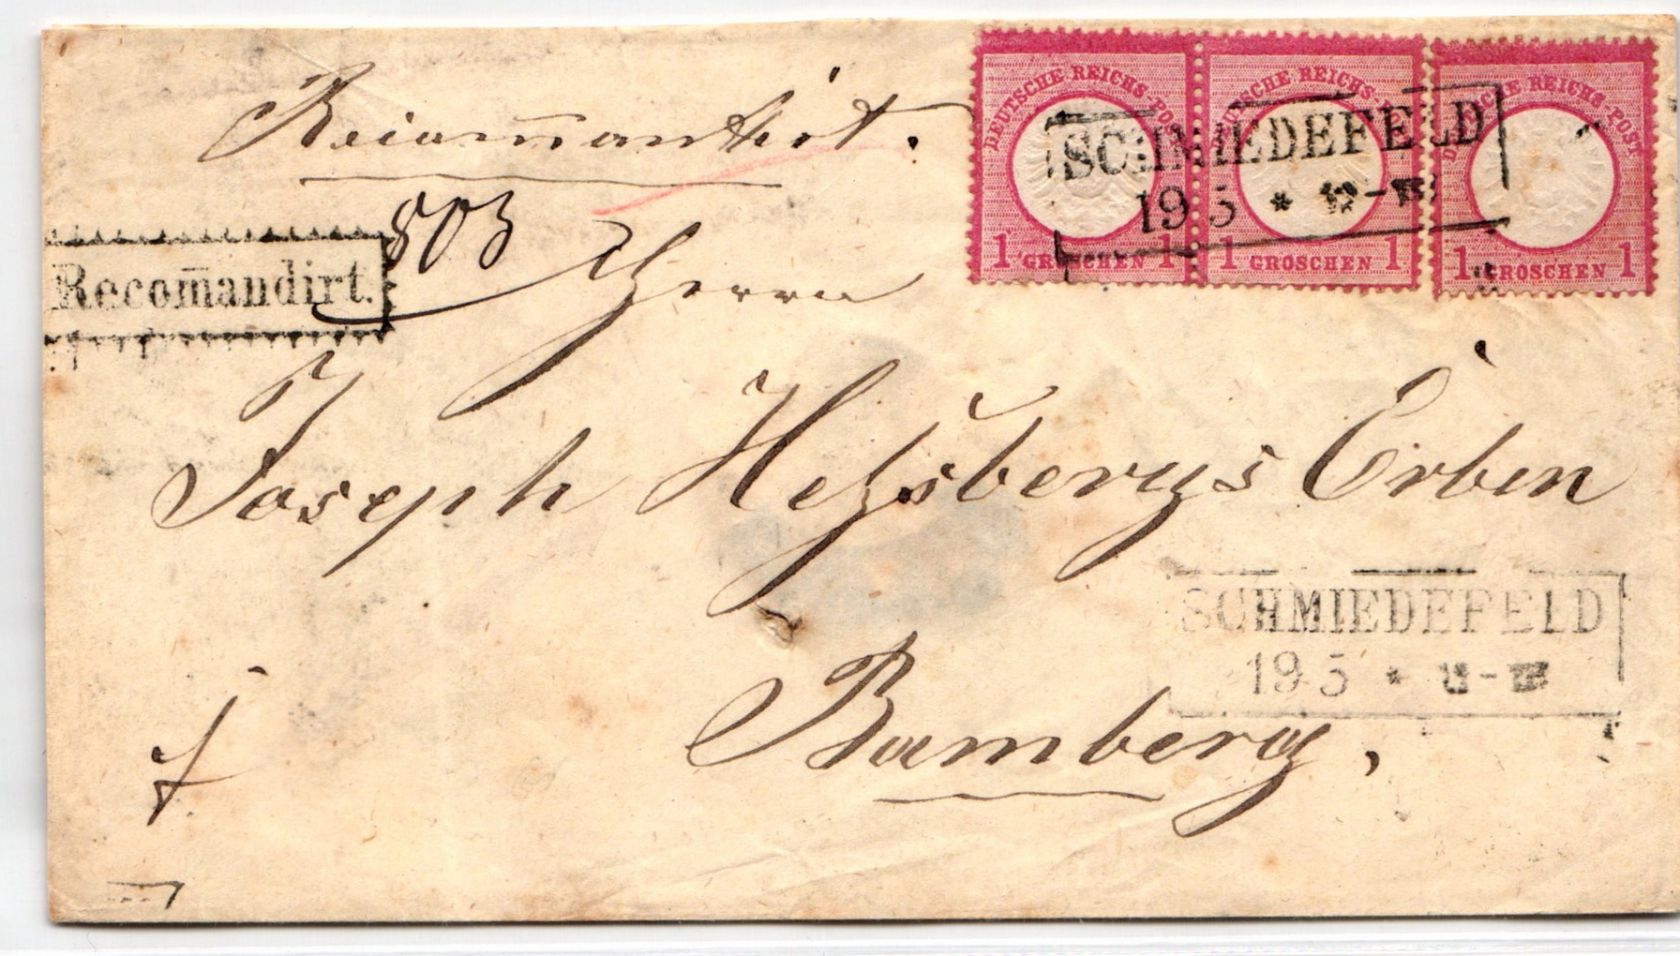 Recom̄andirt.
DEUTSCHE REICHS-POST
1 GROSCHEN 1
DEUTSCHE REICHS-POST
1 GROSCHEN 1
DEUTSCHE REICHS-POST
1 GROSCHEN 1
SCHMIEDEFELD
19 5 *
803
Recom̄andirt.
Herrn
Joseph Heßsbergs Erben
SCHMIEDEFELD
19 5 *
Bamberg,